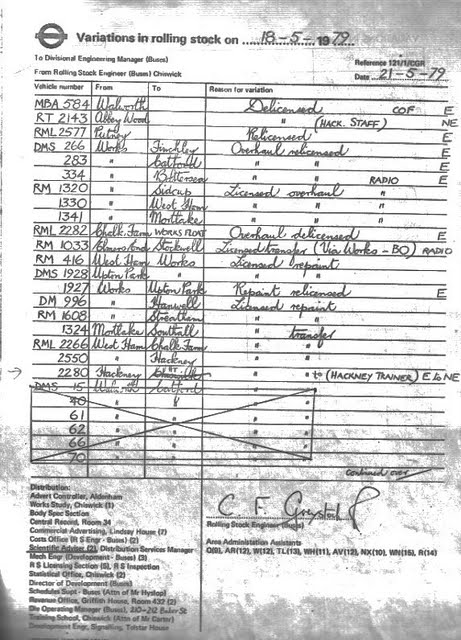 Variations in rolling stock on 18-5-1979
To Divisional Engineering Manager (Buses)
Reference 121/1/CGR
From Rolling Stock Engineer (Buses) Chiswick
Date 21-5-79
Vehicle number From To Reason for variation
MBA 584 Walworth Delicensed COF E
RT 2143 Abbey Wood " (HACK. STAFF) NE
RML 2577 Putney Relicensed E
DMS 266 Works Finchley Overhaul relicensed E
283 " Catford " "
334 " Battersea " " RADIO E
RM 1320 " Sidcup Licensed overhaul "
1330 " West Ham " "
1341 " Mortlake " "
RML 2282 Chalk Farm WORKS FLOAT Overhaul delicensed E
RM 1033 Elmers End Stockwell Licensed transfer (Via Works - BO) RADIO
RM 416 West Ham Works Licensed repaint
DMS 1928 Upton Park " " "
1927 Works Upton Park Repaint relicensed E
DM 996 " Hanwell Licensed repaint
RM 1608 " Streatham " "
1324 Mortlake Southall " transfer
RML 2266 West Ham Chalk Farm " "
2550 " Hackney " "
→ 2280 Hackney " " to (HACKNEY TRAINER) E to NE
DMS 15 Catford " "
40 " " " "
61 " " " "
62 " " " "
66 " " " "
70 " " " "
continued over
Distribution:
Advert Controller, Aldenham
Works Study, Chiswick (1)
Body Spec Section
Central Record, Room 34
Commercial Advertising, Lindsey House (7)
Costs Office (R S Engr - Buses) (2)
Scientific Adviser (2), Distribution Services Manager
Mech Engr (Development - Buses) (3)
R S Licensing Section (5), R S Inspection
Statistical Office, Chiswick (2)
Director of Development (Buses)
Schedules Supt - Buses (Attn of Mr Hyslop)
Revenue Office, Griffith House, Room 432 (2)
Die Operating Manager (Buses), 210-212 Baker St
Training School, Chiswick (Attn of Mr Carter)
Development Engr, Signalling, Telstar House
Rolling Stock Engineer (Buses)
Area Administration Assistants
Q(9), AR(12), W(12), TL(13), WH(11), AV(12), NX(10), WN(15), R(14)